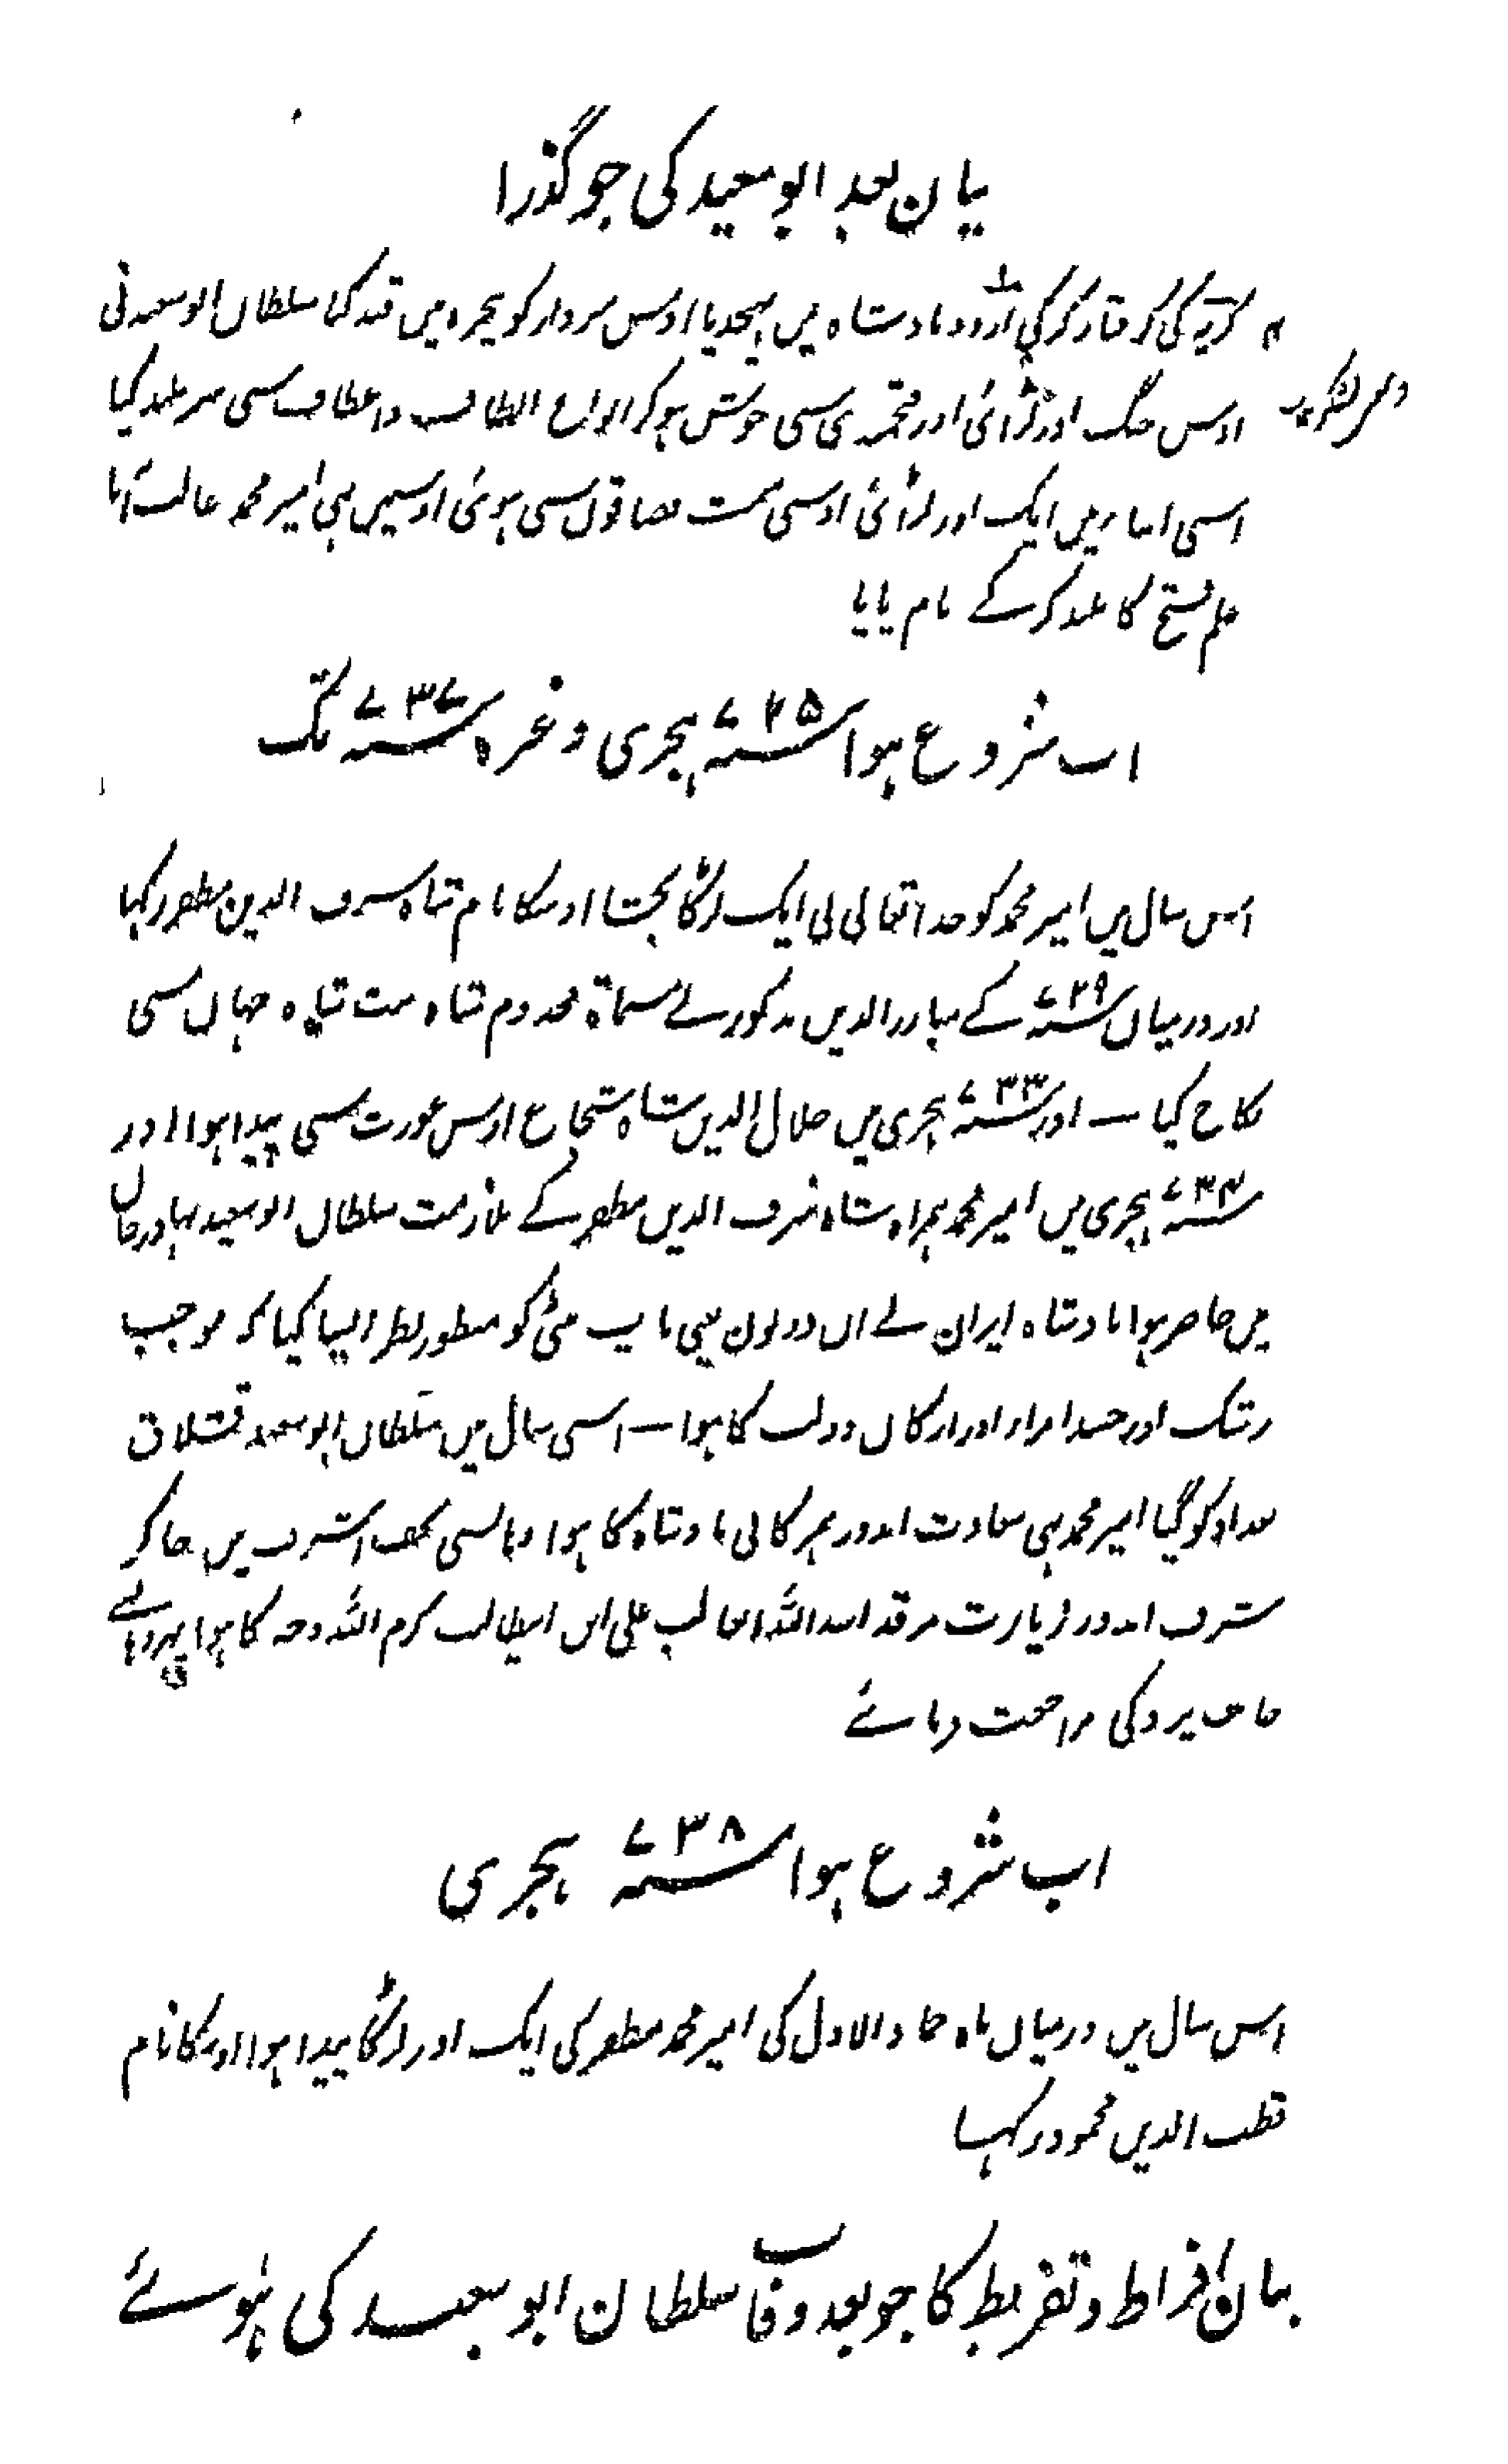 بیان بعد ابو سعید کی جو گذرا
کی گرفتار کر کی اردو بادشاہ میں بھیجدیا اوس سردار کو پنجرہ میں قید کیا سلطان ابو سعید نی
اوس جنگ اور لڑائی اور فتحمندی سی خوش ہو کر انواع الطاف و اعطاف سی سر بلند کیا
اسی اثنا میں ایک اور لڑائی اوسی سی ہوئی اوسمیں بہی امیر محمد غالب آیا
علم فتح کا بلند کر کے نام پایا
اب شروع ہوا سنہ ۷۲۵ ہجری وغیرہ سنہ ۷۳۷ تک
اس سال میں امیر محمد کو خدا تعالی نی ایک لڑکا بخشا اوسکا نام شاہ شرف الدین مظفر رکہا
اور درمیان سنہ ۷۲۹ کے مبارز الدین مذکور نے مسماۃ مخدوم شاہ بنت شاہ جہان سی
نکاح کیا — اور سنہ ۷۳۳ ہجری میں جلال الدین شاہ شجاع اوس عورت سی پیدا ہوا اور
سنہ ۷۳۴ ہجری میں امیر محمد ہمراہ شاہ شرف الدین مظفر کے ملازمت سلطان ابو سعید بہادر خان
میں حاضر ہوا بادشاہ ایران نے ان دونون یعنی باپ بیٹی کو منظور نظر ایسا کیا کہ موجب
رشک اور حسد امراء اور ارکان دولت کا ہوا — اسی سال میں سلطان ابو سعید قشلاق
بغداد کو گیا امیر محمد بہی سعادت اندوز ہمرکابی بادشاہ کا ہوا وہانسی نجف اشرف میں جا کر
شرف اندوز زیارت مرقد اسد اللہ الغالب علی ابن ابیطالب کرم اللہ وجہ کا ہوا پہر وہانسے
جانب یزد کی مراجعت فرمائے
اب شروع ہوا سنہ ۷۳۸ ہجری
اس سال میں درمیان ماہ جماد الاول کی امیر محمد مظفر کی ایک اور لڑکا پیدا ہوا اوسکا نام
قطب الدین محمود رکہا
بیان افراط و تفریط کا جو بعد وفات سلطان ابو سعید کی ہوئے